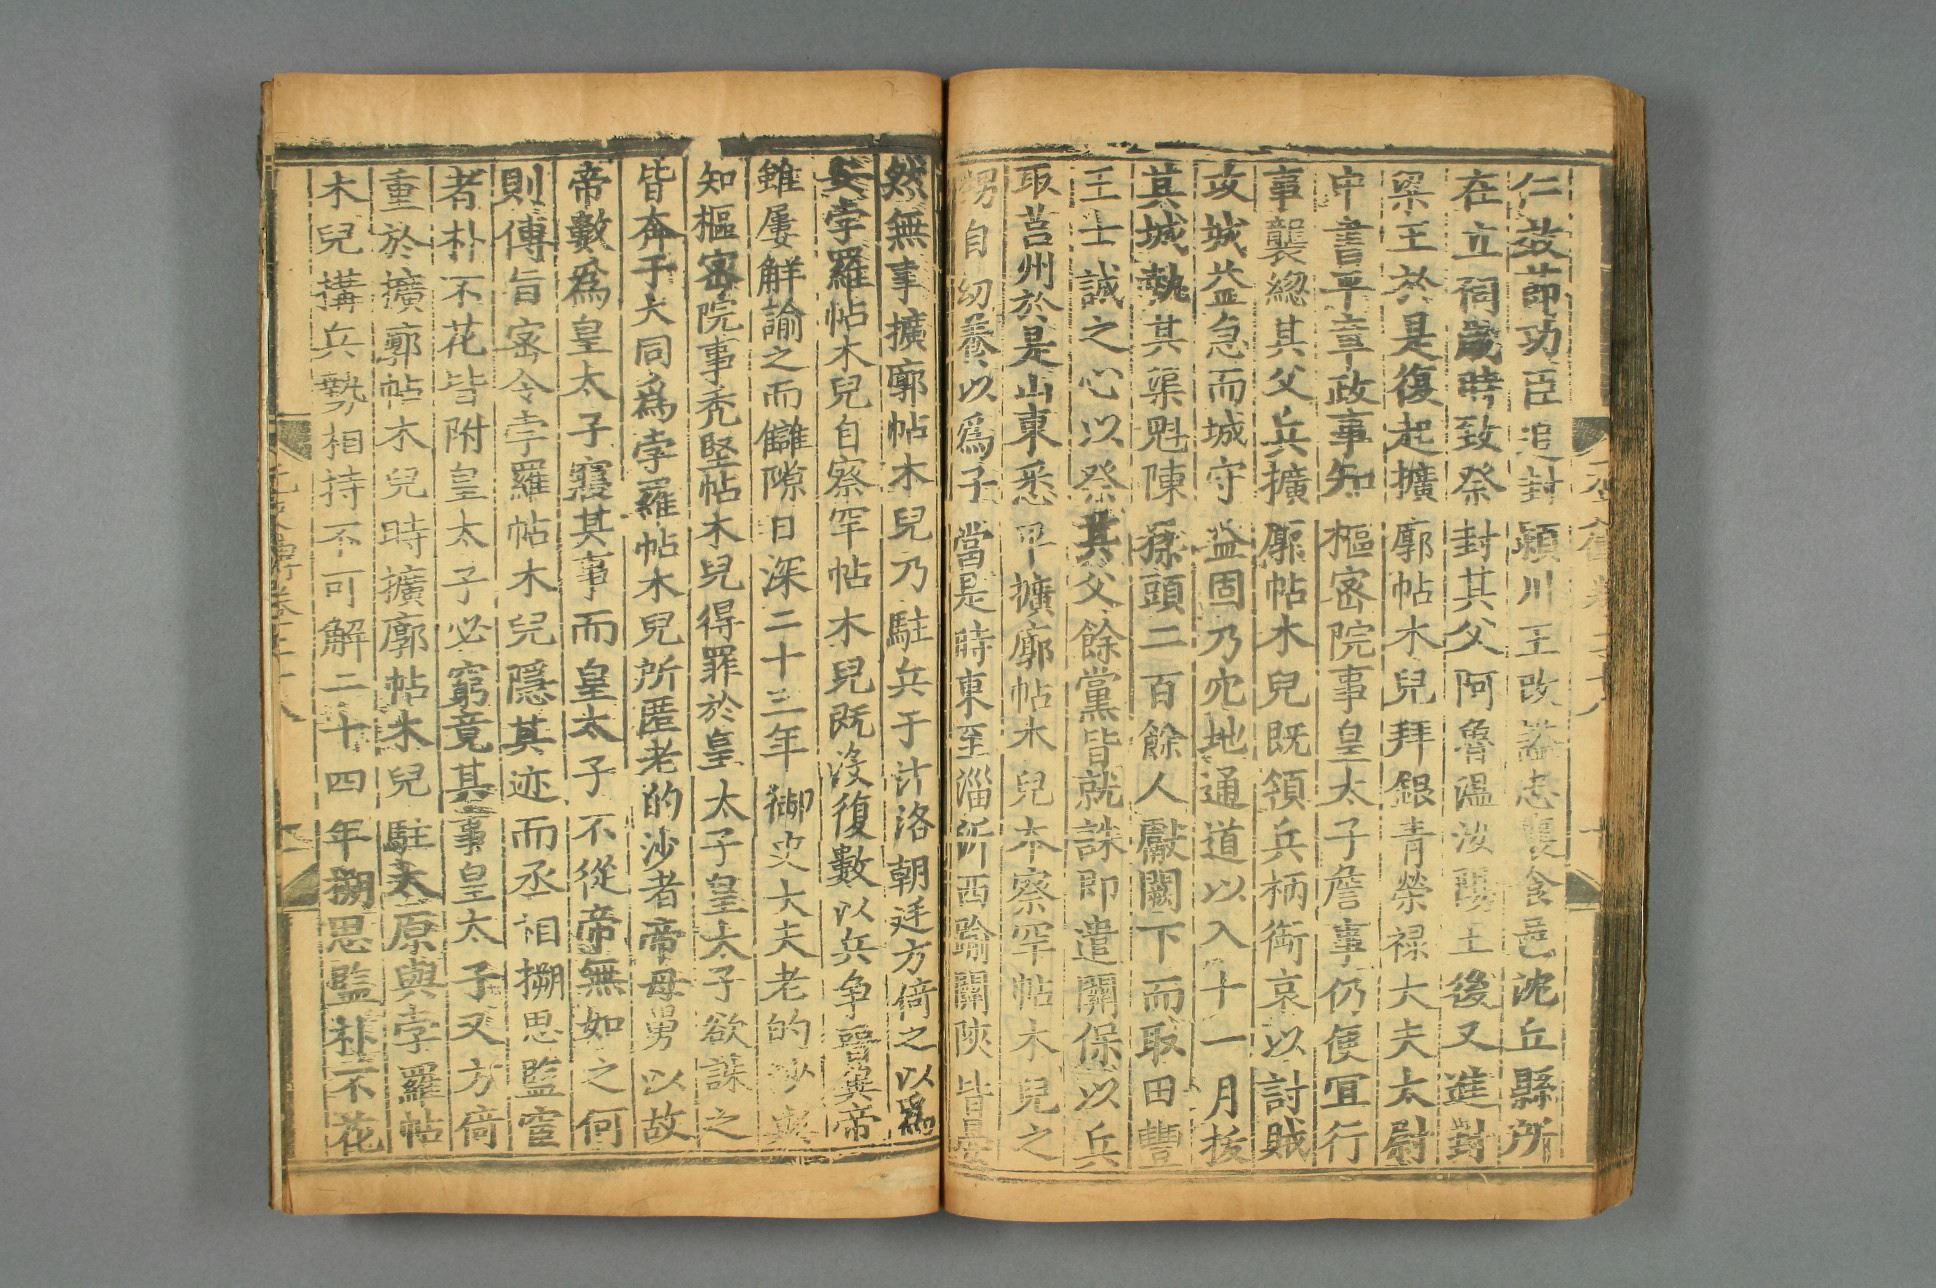 仁效節功臣追封潁川王改謚忠襄食邑沈丘縣所
在立祠歲時致祭封其父阿魯溫汝陽王後又進封
梁王於是復起擴廓帖木兒拜銀青榮祿大夫太尉
中書平章政事知樞密院事皇太子詹事仍便宜行
事襲緫其父兵擴廓帖木兒既領兵柄銜哀以討賊
攻城益急而城守益固乃穴地通道以入十一月拔
其城執其渠魁陳猱頭二百餘人獻闕下而取田豐
王士誠之心以祭其父餘黨皆就誅即遣關保以兵
取莒州於是山東悉平擴廓帖木兒本察罕帖木兒之
甥自幼養以爲子當是時東至淄沂西踰關陝皆晏
然無事擴廓帖木兒乃駐兵于汴洛朝廷方倚之以爲
安孛羅帖木兒自察罕帖木兒既沒復數以兵争晉冀帝
雖屢解諭之而讎隙日深二十三年御史大夫老的沙與
知樞密院事秃堅帖木兒得罪於皇太子皇太子欲誅之
皆奔于大同爲孛羅帖木兒所匿老的沙者帝母舅以故
帝數爲皇太子寢其事而皇太子不從帝無如之何
則傳旨密令孛羅帖木兒隱其迹而丞相搠思監宦
者朴不花皆附皇太子必窮竟其事皇太子又方倚
重於擴廓帖木兒時擴廓帖木兒駐太原與孛羅帖
木兒搆兵勢相持不可解二十四年搠思監朴不花